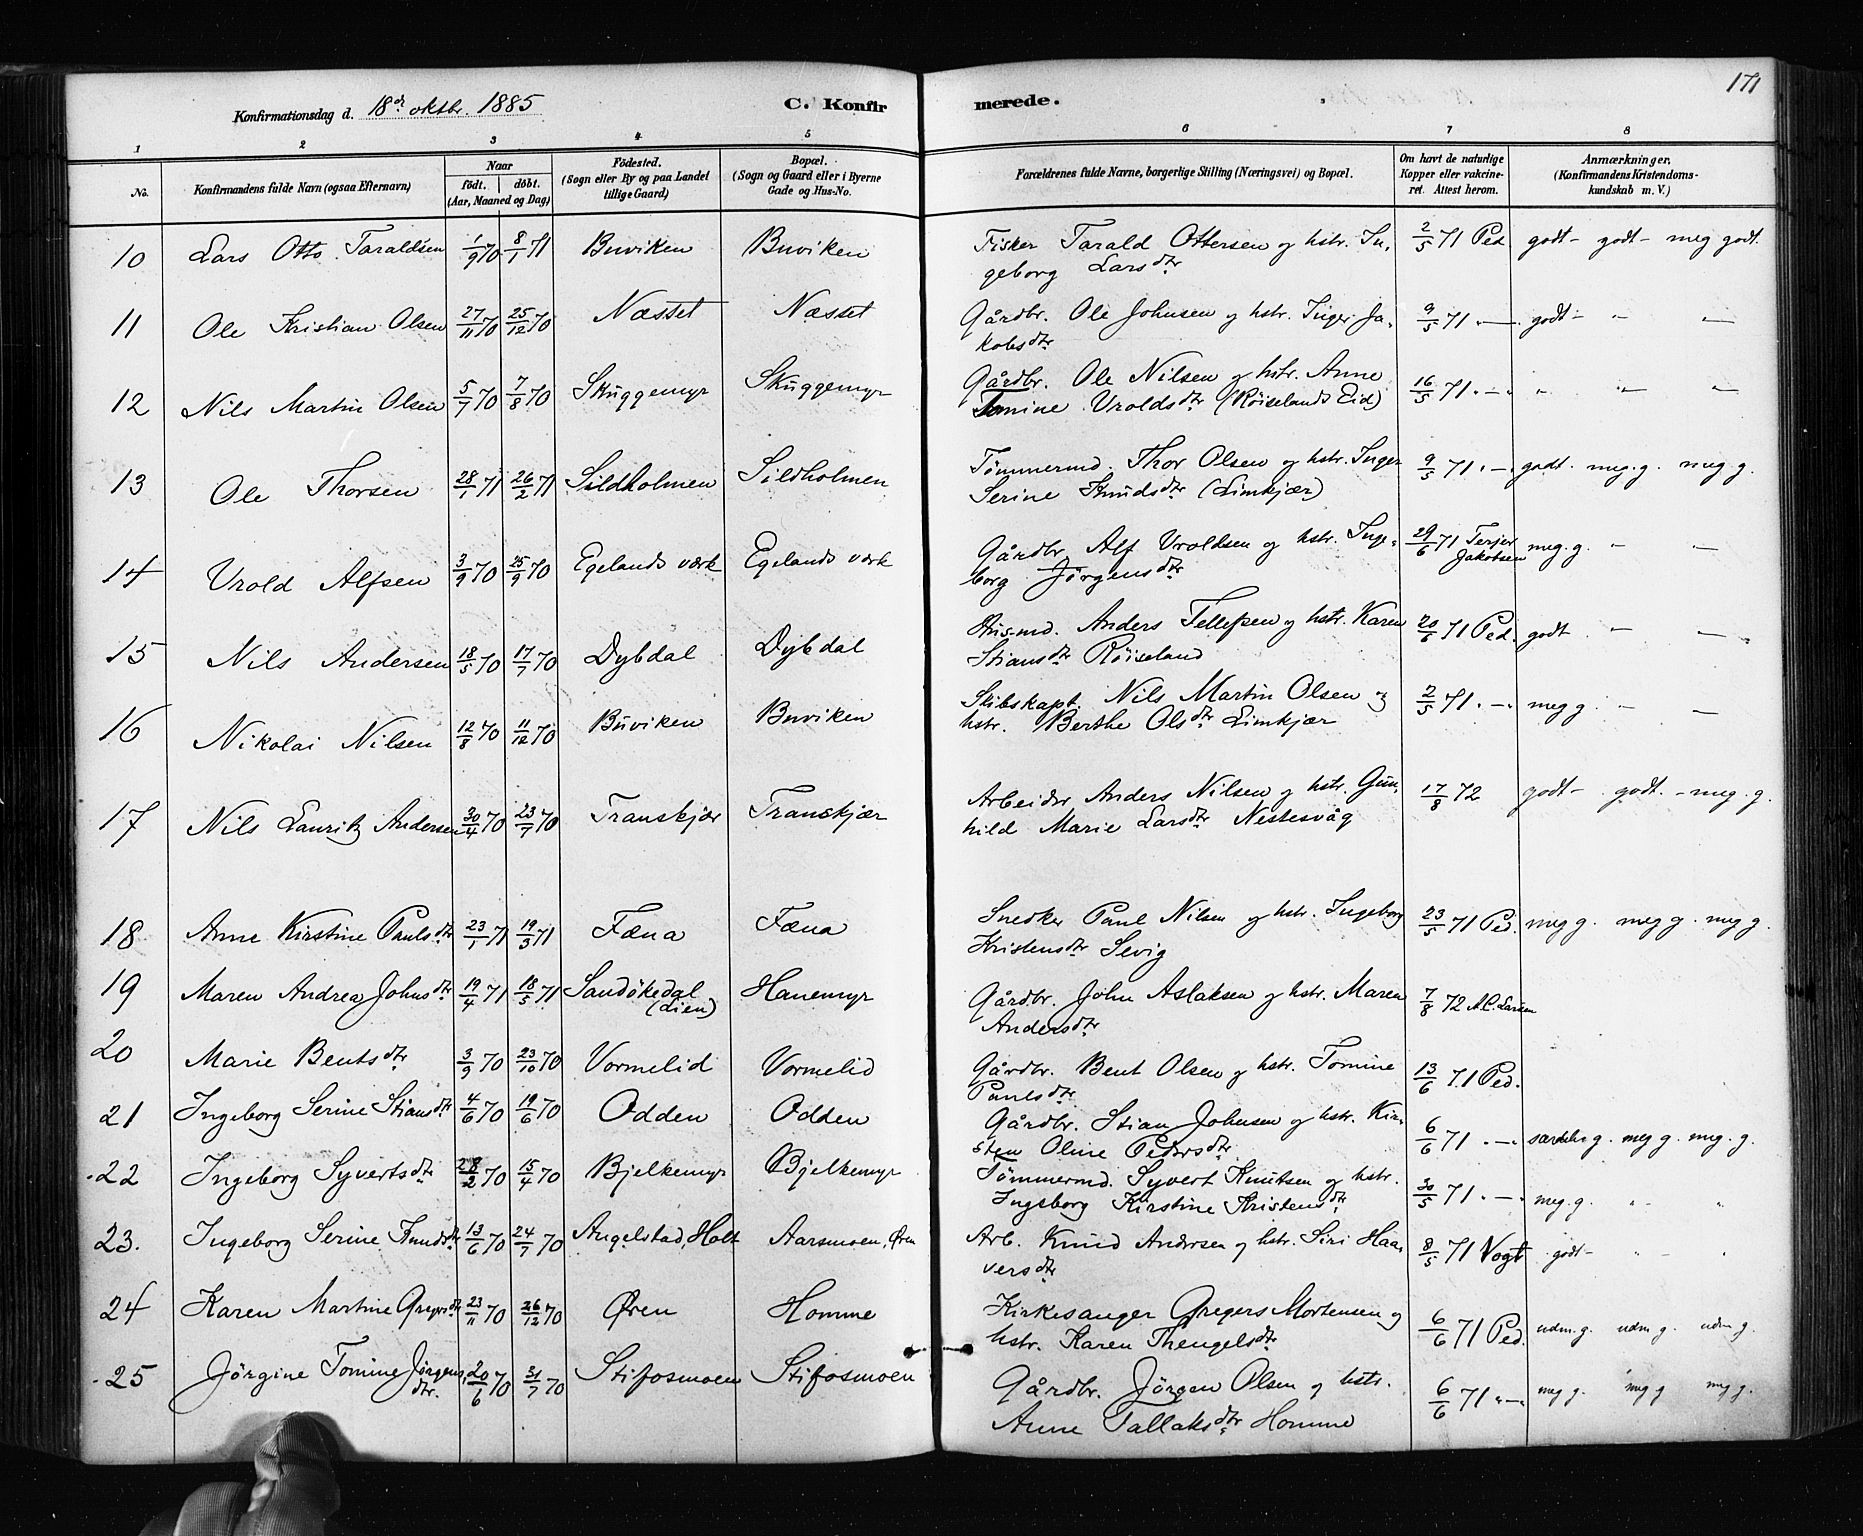 171
Konfirmationsdag d. 18de oktbr. 1885 C. Konfirmerede.
1 2 3 4 5 6 7 8
No. Konfirmandens fulde Navn (ogsaa Efternavn) Naar født. døbt. (Aar, Maaned og Dag) Fødested. (Sogn eller By og paa Landet tillige Gaard) Bopæl. (Sogn og Gaard eller i Byerne Gade og Hus-No. Forældrenes fulde Navne, borgerlige Stilling (Næringsvei) og Bopæl. Om havt de naturlige Kopper eller vakcineret. Attest herom. Anmærkninger. (Konfirmandens Kristendomskundskab m. V.)
10 Lars Otto Taraldsen 1/9 70 8/1 71 Buviken Buviken Fisker Tarald Ottersen og hstr. In- 2/5 71 Ped godt - godt - meg godt.
geborg Larsdtr
11 Ole Kristian Olsen 27/11 70 25/12 70 Næsset Næsset Gårdbr. Ole Johnsen og hstr. Inger Ja- 9/5 71 " — godt - " "
kobsdtr
12 Nils Martin Olsen 5/7 70 7/8 70 Skuggemyr Skuggemyr Gårdbr. Ole Nilsen og hstr. Anne 16/5 71 " — " " " "
Tomine Vroldsdtr (Röiselands Eid)
13 Ole Thorsen 28/1 71 26/2 71 Sildholmen Sildholmen Tömmermd. Thor Olsen og hstr. Inger 9/5 71 " — godt. meg. g. meg g.
Serine Knudsdtr (Limkjær)
14 Vrold Alfsen 3/9 70 25/9 70 Egelands værk Egelands værk Gårdbr. Alf Vroldsen og hstr. Inge- 29/6 71 Terjer Jakobsen meg. g. " "
borg Jörgensdtr
15 Nils Andersen 18/5 70 17/7 70 Dybdal Dybdal Husmd. Anders Tellefsen og hstr. Karen 20/6 71 Ped. godt " "
Stiansdtr Röiseland
16 Nikolai Nilsen 12/8 70 11/12 70 Buviken Buviken Skibskapt. Nils Martin Olsen og 2/5 71 " — meg g. " "
hstr. Berthe Olsdtr Limkjær
17 Nils Lauritz Andersen 30/4 70 23/7 70 Transkjær Transkjær Arbeider Anders Nilsen og hstr. Gun- 17/8 72 godt - godt. - meg. g.
hild Marie Larsdtr Nestesvåg
18 Anne Kirstine Paulsdtr 23/1 71 19/3 71 Fæna Fæna Snedker Paul Nilsen og hstr. Ingeborg 23/5 71 Ped. meg g. meg g. meg g.
Kristensdtr Sevig
19 Maren Andrea Johnsdtr 19/4 71 18/5 71 Sandökedal (Lien) Hanemyr Gårdbr. John Aslaksen og hstr. Maren 7/8 72 A.C. Larsen
Andersdtr
20 Marie Bentsdtr 3/9 70 23/10 70 Vormelid Vormelid Gårdbr. Bent Olsen og hstr. Tomine 13/6 71 Ped.
Paulsdtr
21 Ingeborg Serine Stiansdtr 4/6 70 19/6 70 Odden Odden Gårdbr. Stian Johnsen og hstr. Kir- 6/6 71 " — særdeles g. meg g. meg. g.
sten Oline Pedersdtr
22 Ingeborg Syvertsdtr 28/2 70 15/4 70 Bjelkemyr Bjelkemyr Tömmermd. Syvert Knutsen og hstr. 30/5 71 " — meg. g. " "
Ingeborg Kirstine Kristensdtr
23. Ingeborg Serine Knudsdtr 13/6 70 24/7 70 Angelstad, Holt Aarsmoen, Øren Arb. Knud Andersen og hstr. Siri Haa- 8/5 71 Vogt godt - " "
versdtr
24 Karen Martine Gregersdtr 23/11 70 26/12 70 Øren Homme Kirkesanger Gregers Mortensen og 6/6 71 Ped. udm. g. udm g. udm g.
hstr. Karen Thengelsdtr
25 Jörgine Tomine Jörgens dtr. 20/6 70 31/7 70 Stifosmoen Stifosmoen Gårdbr. Jörgen Olsen og hstr. 6/6 71 " — meg g. meg g meg g.
Anne Tallaksdtr Homme